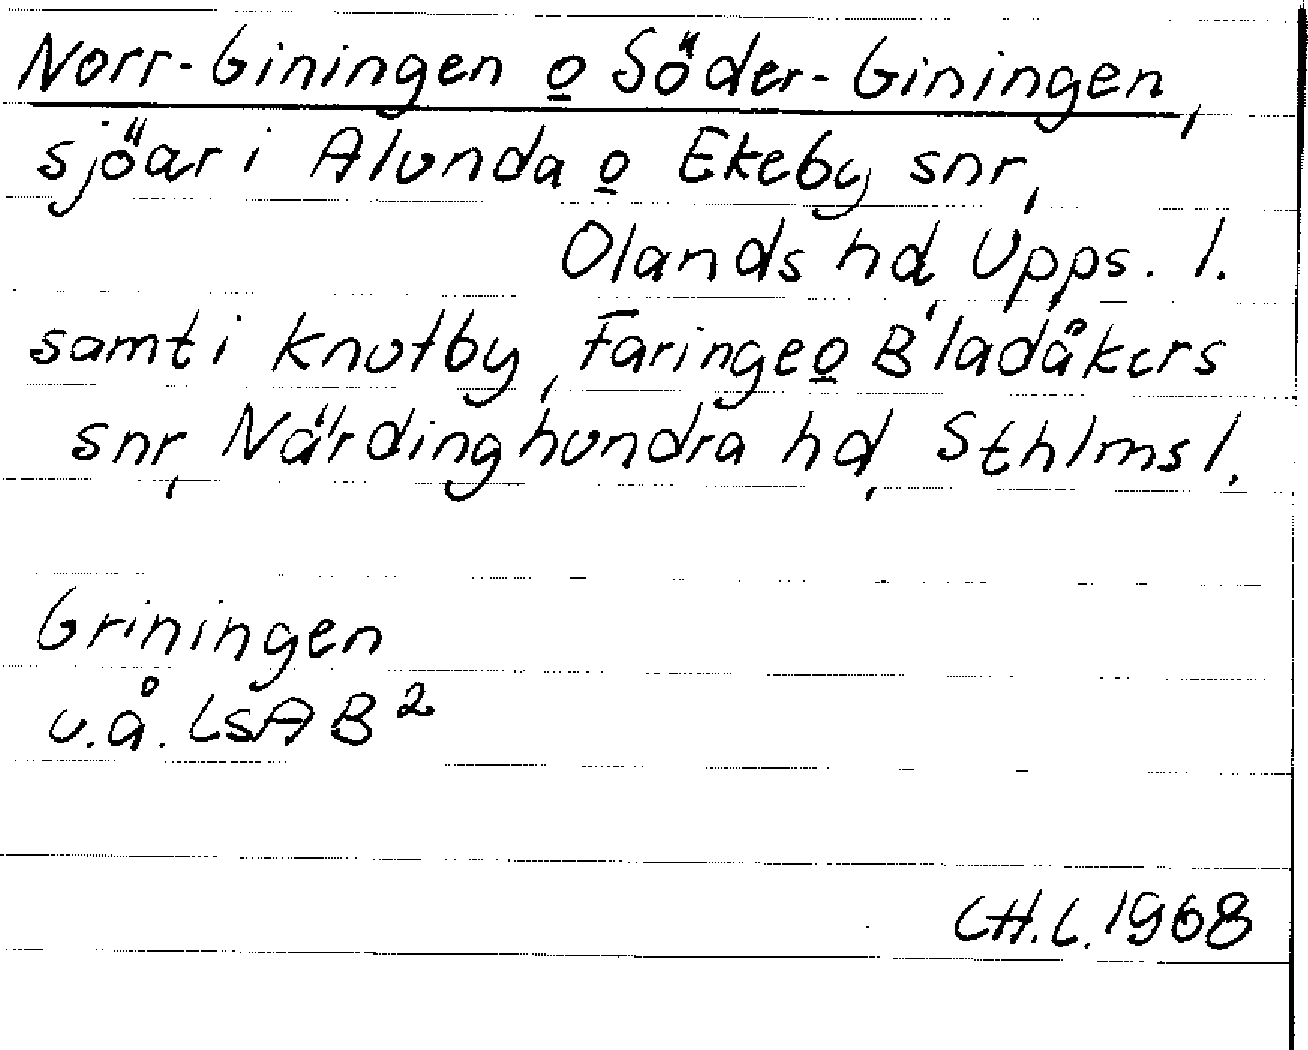 Norr-Giningen o Söder-Giningen,
sjöar i Alunda o Ekeby snr,
Olands hd, Upps. l.
samt i Knutby, Faringe o Bladåkers
snr, Närdinghundra hd, Sthlms l.
Griningen
u.å. LSA B²
CH.L. 1968